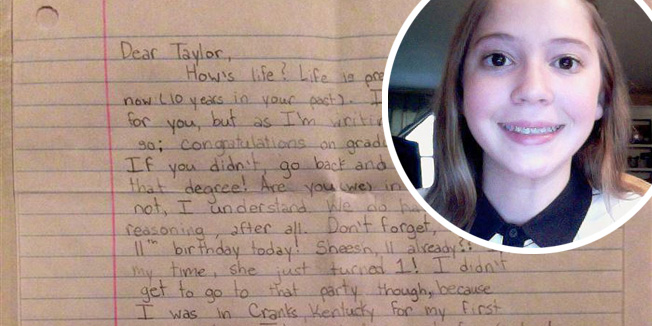 Dear Taylor,
How's life? Life is
now (10 years in your past). I
for you, but as I'm
so; congratulations on
If you didn't, go back and
that degree! Are you in
not, I understand. We do
reasoning, after all. Don't forget,
11th birthday today! Sheesh, 11 already?!
my time, she just turned 1! I didn't
get to go to that party though, because
I was in Cranks, Kentucky for my first